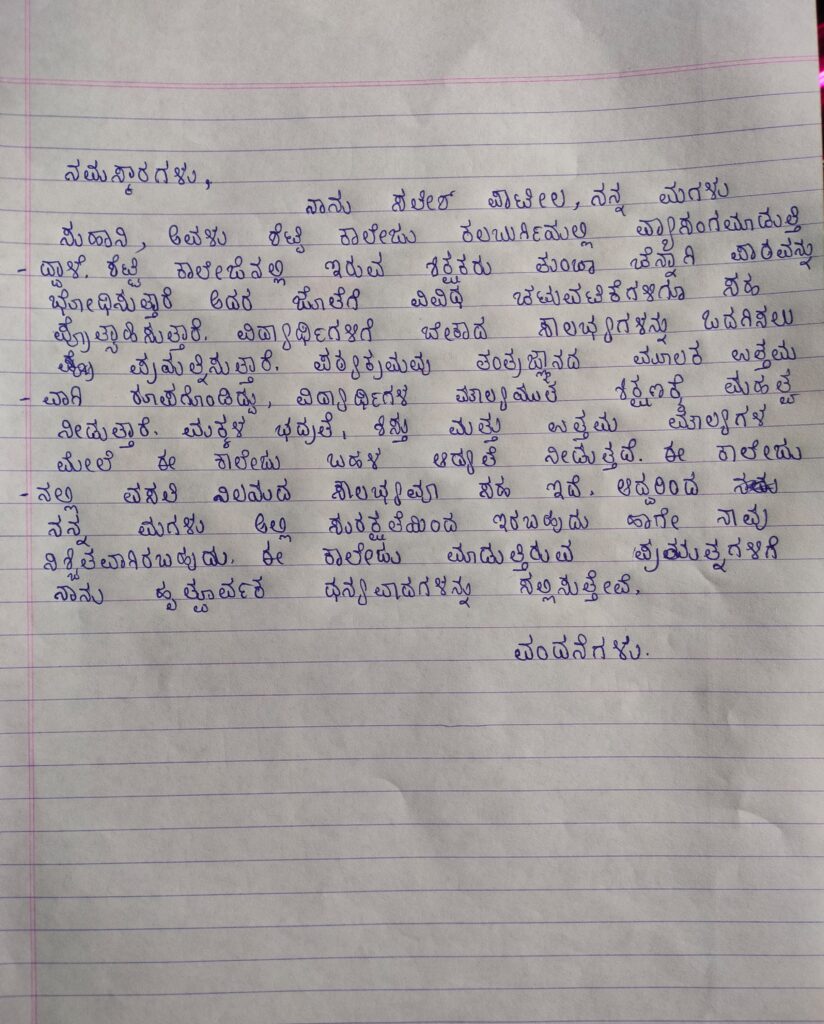 ನಮಸ್ಕಾರಗಳು,
ನಾನು ಸತೀಶ್ ಪಾಟೀಲ, ನನ್ನ ಮಗಳು
ಸುಹಾನಿ, ಅವಳು ಶೆಟ್ಟಿ ಕಾಲೇಜು ಕಲಬುರ್ಗಿಯಲ್ಲಿ ವ್ಯಾಸಂಗಮಾಡುತ್ತಿ
- ದ್ದಾಳೆ. ಶೆಟ್ಟಿ ಕಾಲೇಜಿನಲ್ಲಿ ಇರುವ ಶಿಕ್ಷಕರು ತುಂಬಾ ಚೆನ್ನಾಗಿ ಪಾಠವನ್ನು
ಭೋಧಿಸುತ್ತಾರೆ ಅದರ ಜೊತೆಗೆ ವಿವಿಧ ಚಟುವಟಿಕೆಗಳಿಗೂ ಸಹ
ಪ್ರೋತ್ಸಾಹಿಸುತ್ತಾರೆ. ವಿದ್ಯಾರ್ಥಿಗಳಿಗೆ ಬೇಕಾದ ಸೌಲಭ್ಯಗಳನ್ನು ಒದಗಿಸಲು
ಪ್ರಯತ್ನಿಸುತ್ತಾರೆ. ಪಠ್ಯಕ್ರಮವು ತಂತ್ರಜ್ಞಾನದ ಮೂಲಕ ಉತ್ತಮ
- ವಾಗಿ ರೂಪಗೊಂಡಿದ್ದು, ವಿದ್ಯಾರ್ಥಿಗಳ ಮೌಲ್ಯಯುತ ಶಿಕ್ಷಣಕ್ಕೆ ಮಹತ್ವ
ನೀಡುತ್ತಾರೆ. ಮಕ್ಕಳ ಭದ್ರತೆ, ಶಿಸ್ತು ಮತ್ತು ಉತ್ತಮ ಮೌಲ್ಯಗಳ
ಮೇಲೆ ಈ ಕಾಲೇಜು ಬಹಳ ಆದ್ಯತೆ ನೀಡುತ್ತದೆ. ಈ ಕಾಲೇಜು
- ನಲ್ಲಿ ವಸತಿ ನಿಲಯದ ಸೌಲಭ್ಯವೂ ಸಹ ಇದೆ. ಆದ್ದರಿಂದ
ನನ್ನ ಮಗಳು ಅಲ್ಲಿ ಸುರಕ್ಷತೆಯಿಂದ ಇರಬಹುದು ಹಾಗೇ ನಾವು
ನಿಶ್ಚಿತವಾಗಿರಬಹುದು. ಈ ಕಾಲೇಜು ಮಾಡುತ್ತಿರುವ ಪ್ರಯತ್ನಗಳಿಗೆ
ನಾನು ಹೃತ್ಪೂರ್ವಕ ಧನ್ಯವಾದಗಳನ್ನು ಸಲ್ಲಿಸುತ್ತೇವೆ.
ವಂದನೆಗಳು.